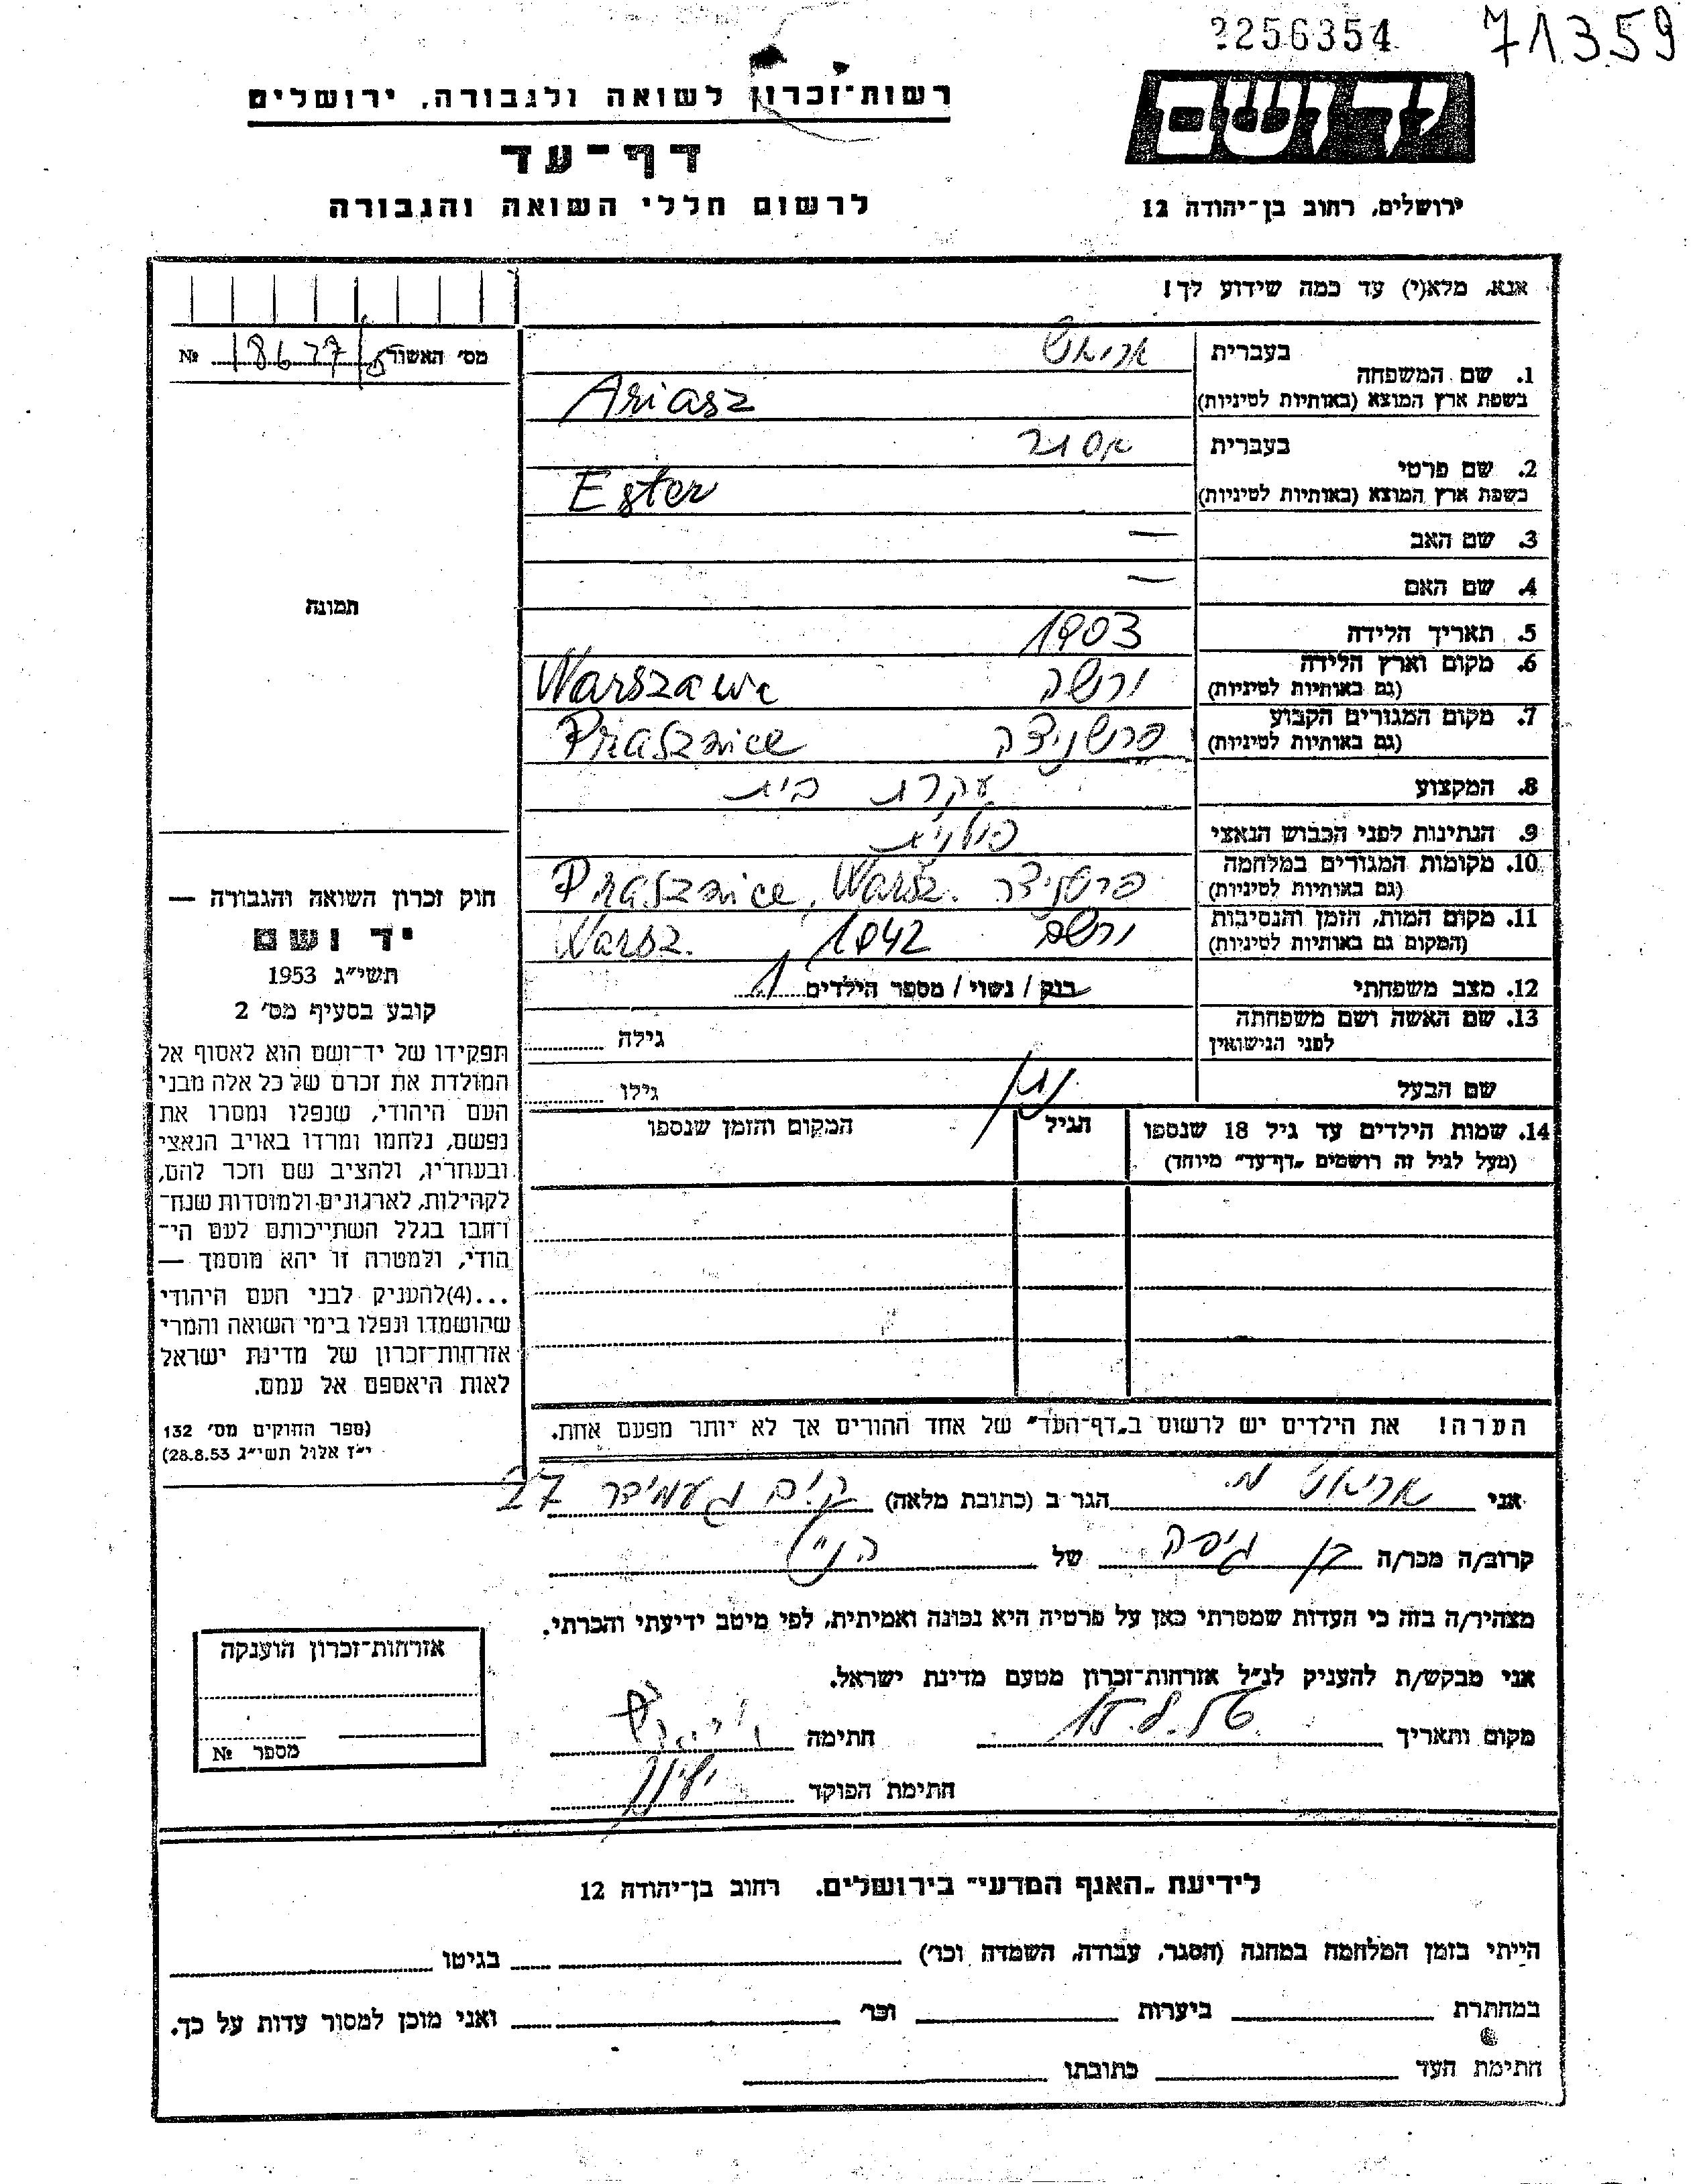 2256354 71359
רשות־זכרון לשואה ולגבורה, ירושלים
יד ושם
דף־עד
לרשום חללי השואה והגבורה
ירושלים, רחוב בן־יהודה 12
אנא, מלא(י) עד כמה שידוע לך!
מס' האשור 18677 №
1. שם המשפחה
בעברית אריאש
בשפת ארץ המוצא (באותיות לטיניות) Ariasz
2. שם פרטי
בעברית אסתר
בשפת ארץ המוצא (באותיות לטיניות) Ester
3. שם האב —
4. שם האם —
5. תאריך הלידה 1903
6. מקום וארץ הלידה ורשה Warszawa
(גם באותיות לטיניות)
7. מקום המגורים הקבוע פרשניצה Prasznice
(גם באותיות לטיניות)
8. המקצוע עקרת בית
9. הנתינות לפני הכבוש הנאצי פולנית
10. מקומות המגורים במלחמה פרשניצה Prasznice, Warsz.
(גם באותיות לטיניות)
11. מקום המות, הזמן והנסיבות ורשה 1942 Warsz.
(המקום גם באותיות לטיניות)
12. מצב משפחתי רווק / נשוי / מספר הילדים 1
13. שם האשה ושם משפחתה
לפני הנישואין גילה
שם הבעל נתן גילו
14. שמות הילדים עד גיל 18 שנספו הגיל המקום והזמן שנספו
(מעל לגיל זה רושמים „דף־עד" מיוחד)
הערה! את הילדים יש לרשום ב„דף־העד" של אחד ההורים אך לא יותר מפעם אחת.
תמונה
חוק זכרון השואה והגבורה —
יד ושם
תשי״ג 1953
קובע בסעיף מס' 2
תפקידו של יד־ושם הוא לאסוף אל
המולדת את זכרם של כל אלה מבני
העם היהודי, שנפלו ומסרו את
נפשם, נלחמו ומרדו באויב הנאצי
ובעוזריו, ולהציב שם וזכר להם,
לקהילות, לארגונים ולמוסדות שנח־
רחבו בגלל השתייכותם לעם הי־
הודי, ולמטרה זו יהא מוסמך —
...(4)להעניק לבני העם היהודי
שהושמדו ונפלו בימי השואה והמרי
אזרחות־זכרון של מדינת ישראל
לאות היאספם אל עמם.
(ספר החוקים מס' 132
י״ז אלול תשי״ג 28.8.53)
אני מ. הגר ב (כתובת מלאה) 27
קרוב/ה מכר/ה בן של הנ״ל
מצהיר/ה בזה כי העדות שמסרתי כאן על פרטיה היא נכונה ואמיתית, לפי מיטב ידיעתי והכרתי.
אני מבקש/ת להעניק לנ״ל אזרחות־זכרון מטעם מדינת ישראל.
מקום ותאריך חתימה
חתימת הפוקד
אזרחות־זכרון הוענקה
מספר №
לידיעת „האגף המדעי" בירושלים. רחוב בן־יהודה 12
הייתי בזמן המלחמה במחנה (הסגר, עבודה, השמדה וכו') בגיטו
במחתרת ביערות וכו' ואני מוכן למסור עדות על כך.
חתימת העד כתובתו